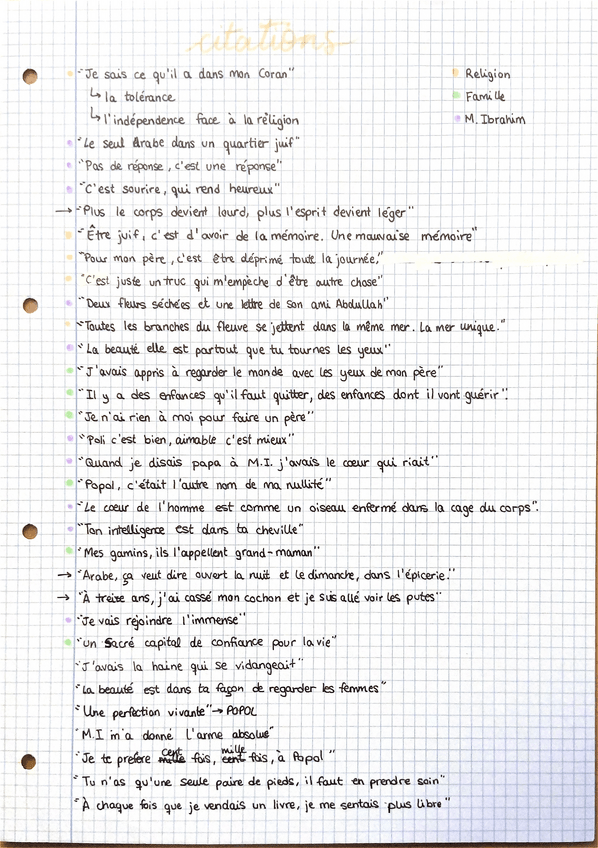 citations
"Je sais ce qu'il a dans mon Coran"
Religion
↳ la tolérance
Famille
↳ l'indépendance face à la réligion
M. Ibrahim
"Le seul Arabe dans un quartier juif"
"Pas de réponse, c'est une réponse"
"C'est sourire, qui rend heureux"
→ "Plus le corps devient lourd, plus l'esprit devient léger"
"Être juif, c'est d'avoir de la mémoire. Une mauvaise mémoire"
"Pour mon père, c'est être déprimé toute la journée."
"C'est juste un truc qui m'empèche d'être autre chose"
"Deux fleurs séchées et une lettre de son ami Abdullah"
"Toutes les branches du fleuve se jettent dans la même mer. La mer unique."
"La beauté elle est partout que tu tournes les yeux"
"J'avais appris à regarder le monde avec les yeux de mon père"
"Il y a des enfances qu'il faut quitter, des enfances dont il vont guérir".
"Je n'ai rien à moi pour faire un père"
"Poli c'est bien, aimable c'est mieux"
"Quand je disais papa à M.I. j'avais le cœur qui riait"
"Popol, c'était l'autre nom de ma nullité"
"Le cœur de l'homme est comme un oiseau enfermé dans la cage du corps".
"Ton intelligence est dans ta cheville"
"Mes gamins, ils l'appellent grand-maman"
→ "Arabe, ça veut dire ouvert la nuit et le dimanche, dans l'épicerie."
→ "À treize ans, j'ai cassé mon cochon et je suis allé voir les putes"
"Je vais rejoindre l'immense"
"un sacré capital de confiance pour la vie"
"J'avais la haine qui se vidangeait"
"La beauté est dans ta façon de regarder les femmes"
"Une perfection vivante" → POPOL
"M.I m'a donné l'arme absolue"
"Je te prefere cent fois, mille fois, à Popol"
"Tu n'as qu'une seule paire de pieds, il faut en prendre soin"
"À chaque fois que je vendais un livre, je me sentais plus libre"